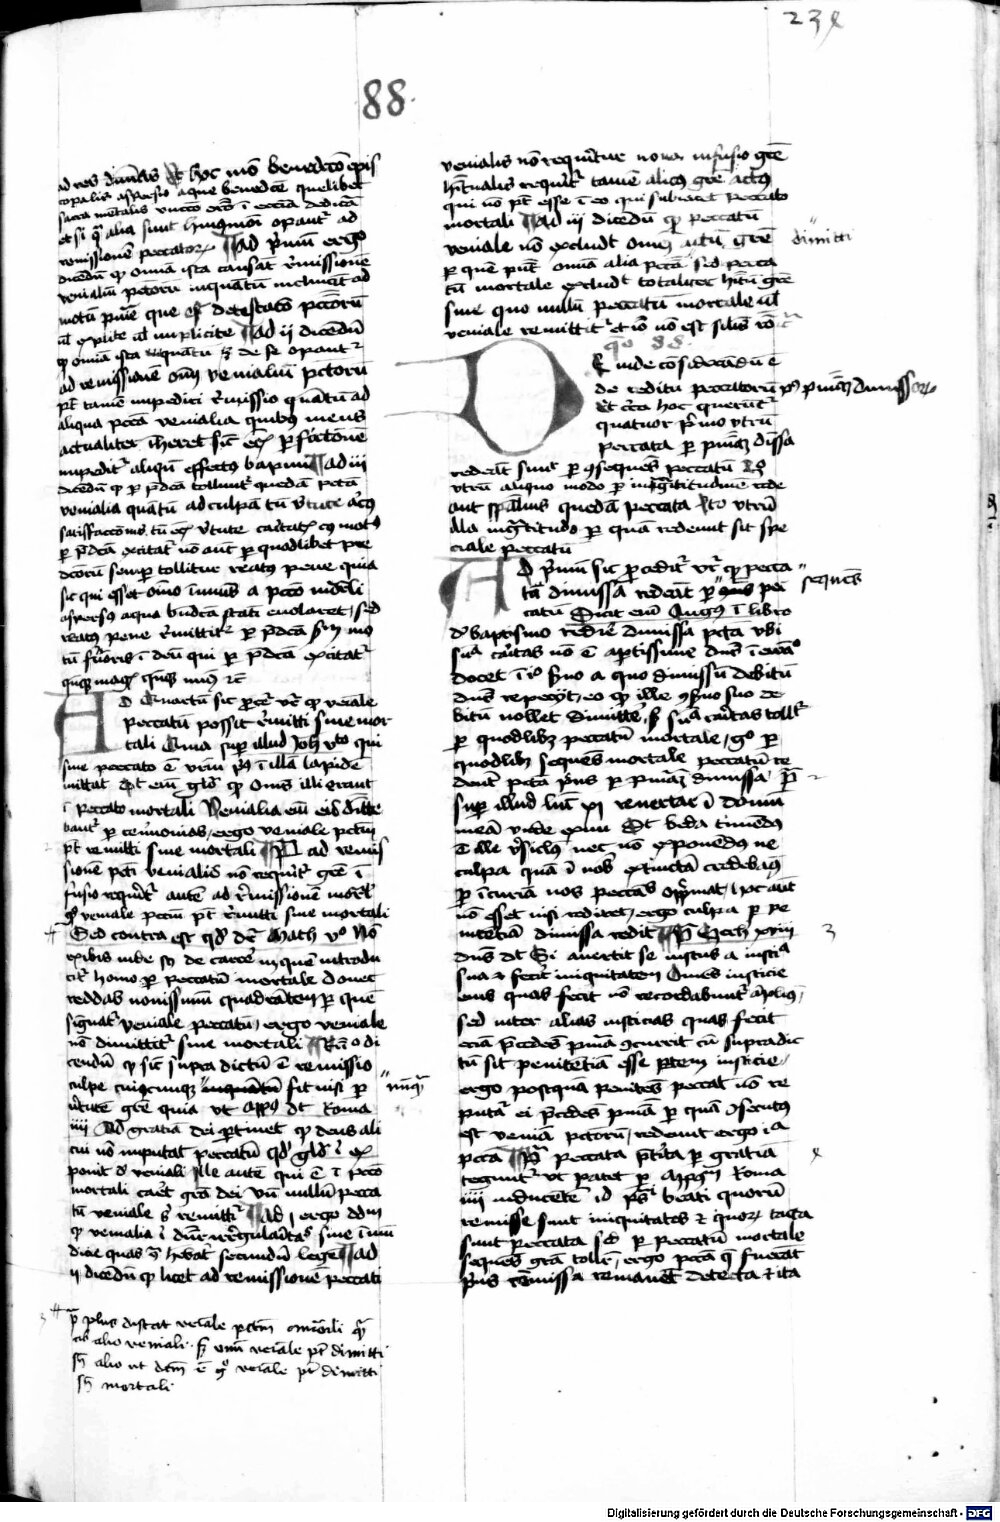 238
88
ad res diuinas Et hoc modo benedictio epis
copalis aspersio aque benedicte quelibet
sacramentalis unctio oratio in ecclesia dedicata
et si qua alia sunt huiusmodi operantur ad
remissionem peccatorum Ad primum ergo
dicendum quod omnia ista causant remissionem
venialium peccatorum inquantum inclinant ad
motum penitentie que est detestatio peccatorum
uel explicite uel implicite Ad ii dicendum
quod omnia ista quantum est de se operantur
ad remissionem omnium venialium peccatorum
potest tamen impediri remissio quantum ad
aliqua peccata venialia quibus mens
actualiter inheret sicut etiam per fictionem
impeditur aliquando effectus baptismi Ad iii
dicendum quod per predicta tolluntur quedam peccata
venialia quantum ad culpam tum virtute alicuius
satisfactionis tum etiam virtute caritatis cuius motus
per predicta excitatur non autem per quodlibet pre
dictorum semper tollitur reatus pene quia
sic qui esset omnino immunis a peccato mortali
aspersus aqua benedicta statim euolaret sed
reatus pene remittitur per predicta secundum mo
tum feruoris in deum qui per predicta excitatur
quandoque magis quandoque minus etc
AD Quartum sic proceditur videtur quod veniale
peccatum possit remitti sine mor
tali Quia super illud Joh viii qui
sine peccato est vestrum primus in illam lapidem
mittat dicit enim glosa quod omnes illi erant
in peccato mortali Venialia enim eis dimitte
bantur per ceremonias ergo veniale peccatum
potest remitti sine mortali Preterea ad remis
sionem peccati venialis non requiritur gratie in
fusio requiritur autem ad remissionem mortalis
ergo veniale peccatum potest remitti sine mortali
Sed contra est quod dicitur Math v Non
exibis inde scilicet de carcere in quem introdu
citur homo per peccatum mortale donec
reddas nouissimum quadrantem per quem
signatur veniale peccatum ergo veniale
non dimittitur sine mortali Respondeo di
cendum quod sicut supra dictum est remissio
culpe cuiuscumque inquantum fit nisi per nunquam
virtutem gratie quia ut apostolus dicit Roma
iiii Ad gratiam dei pertinet quod deus ali
cui non imputat peccatum quod glosa ibi ex
ponit de veniali Ille autem qui est in peccato
mortali caret gratia dei unde nullum pecca
tum veniale ei remittitur Ad i ergo dicendum
quod venialia ibi dicuntur irregularitates siue immun
dicie quas contrahebant secundum legem Ad
ii dicendum quod licet ad remissionem peccati
preterea plus distat veniale peccatum a mortali quam
ab alio veniali sed unum veniale potest dimitti
sine alio ut dictum est ergo veniale potest dimitti
sine mortali
venialis non requiritur noua infusio gratie
habitualis requiritur tamen aliquis gratie actus
qui non potest esse in eo qui subiacet peccato
mortali Ad iii dicendum quod peccatum
veniale non excludit omnem actum gratie
per quem possunt omnia alia peccata dimitti sed pecca
tum mortale excludit totaliter habitum gratie
sine quo nullum peccatum mortale uel
veniale remittitur et ideo non est similis ratio
qo 88
DEinde considerandum est
de reditu peccatorum post penitentiam dimissorum
Et circa hoc queruntur
quatuor primo utrum
peccata per penitentiam dimissa
redeant simpliciter per consequens peccatum 2o
utrum aliquo modo per ingratitudinem rede
ant specialius quedam peccata 3o utrum
alia ingratitudo per quam redeunt sit spe
ciale peccatum
AD primum sic proceditur videtur quod pecca
ta dimissa redeant per sequens pec
catum Dicit enim Augustinus in libro
de baptismo redire dimissa peccata ubi
fraterna caritas non est apertissime dominus in euangelio
docet in illo seruo a quo dimissum debitum
dominus repeciit eo quod ille conseruo suo de
bitum nollet dimittere sed fraterna caritas tollitur
per quodlibet peccatum mortale ergo per
quodlibet sequens mortale peccatum re
deunt peccata prius per penitentiam dimissa Preterea
super illud Luc xi reuertar in domum
meam unde exiui dicit beda timendus
est ille versiculus nec non exponendus ne
culpa quam in nobis extinctam credebamus
per incuriam nos peccatis opprimat hoc autem
non esset nisi rediret ergo culpa per pe
nitentiam dimissa redit Preterea Ezech xviii
dominus dicit Si auerterit se iustus a iustitia
sua et fecerit iniquitatem omnes iusticie
eius quas fecit non recordabuntur amplius
sed inter alias iusticias quas fecit
etiam precedens penitentia concurrit cum supradic
tum sit penitentiam esse partem iusticie
ergo postquam penitens peccat non re
putatur ei precedens penitentia per quam consecutus
est veniam peccatorum redeunt ergo illa
peccata Preterea peccata preterita per gratiam
teguntur ut patet per apostolum Roma
iiii inducentem id psalmi beati quorum
remisse sunt iniquitates et quorum tecta
sunt peccata sed per peccatum mortale
sequens gratia tollitur ergo peccata que fuerant
prius remissa remanent detecta et ita